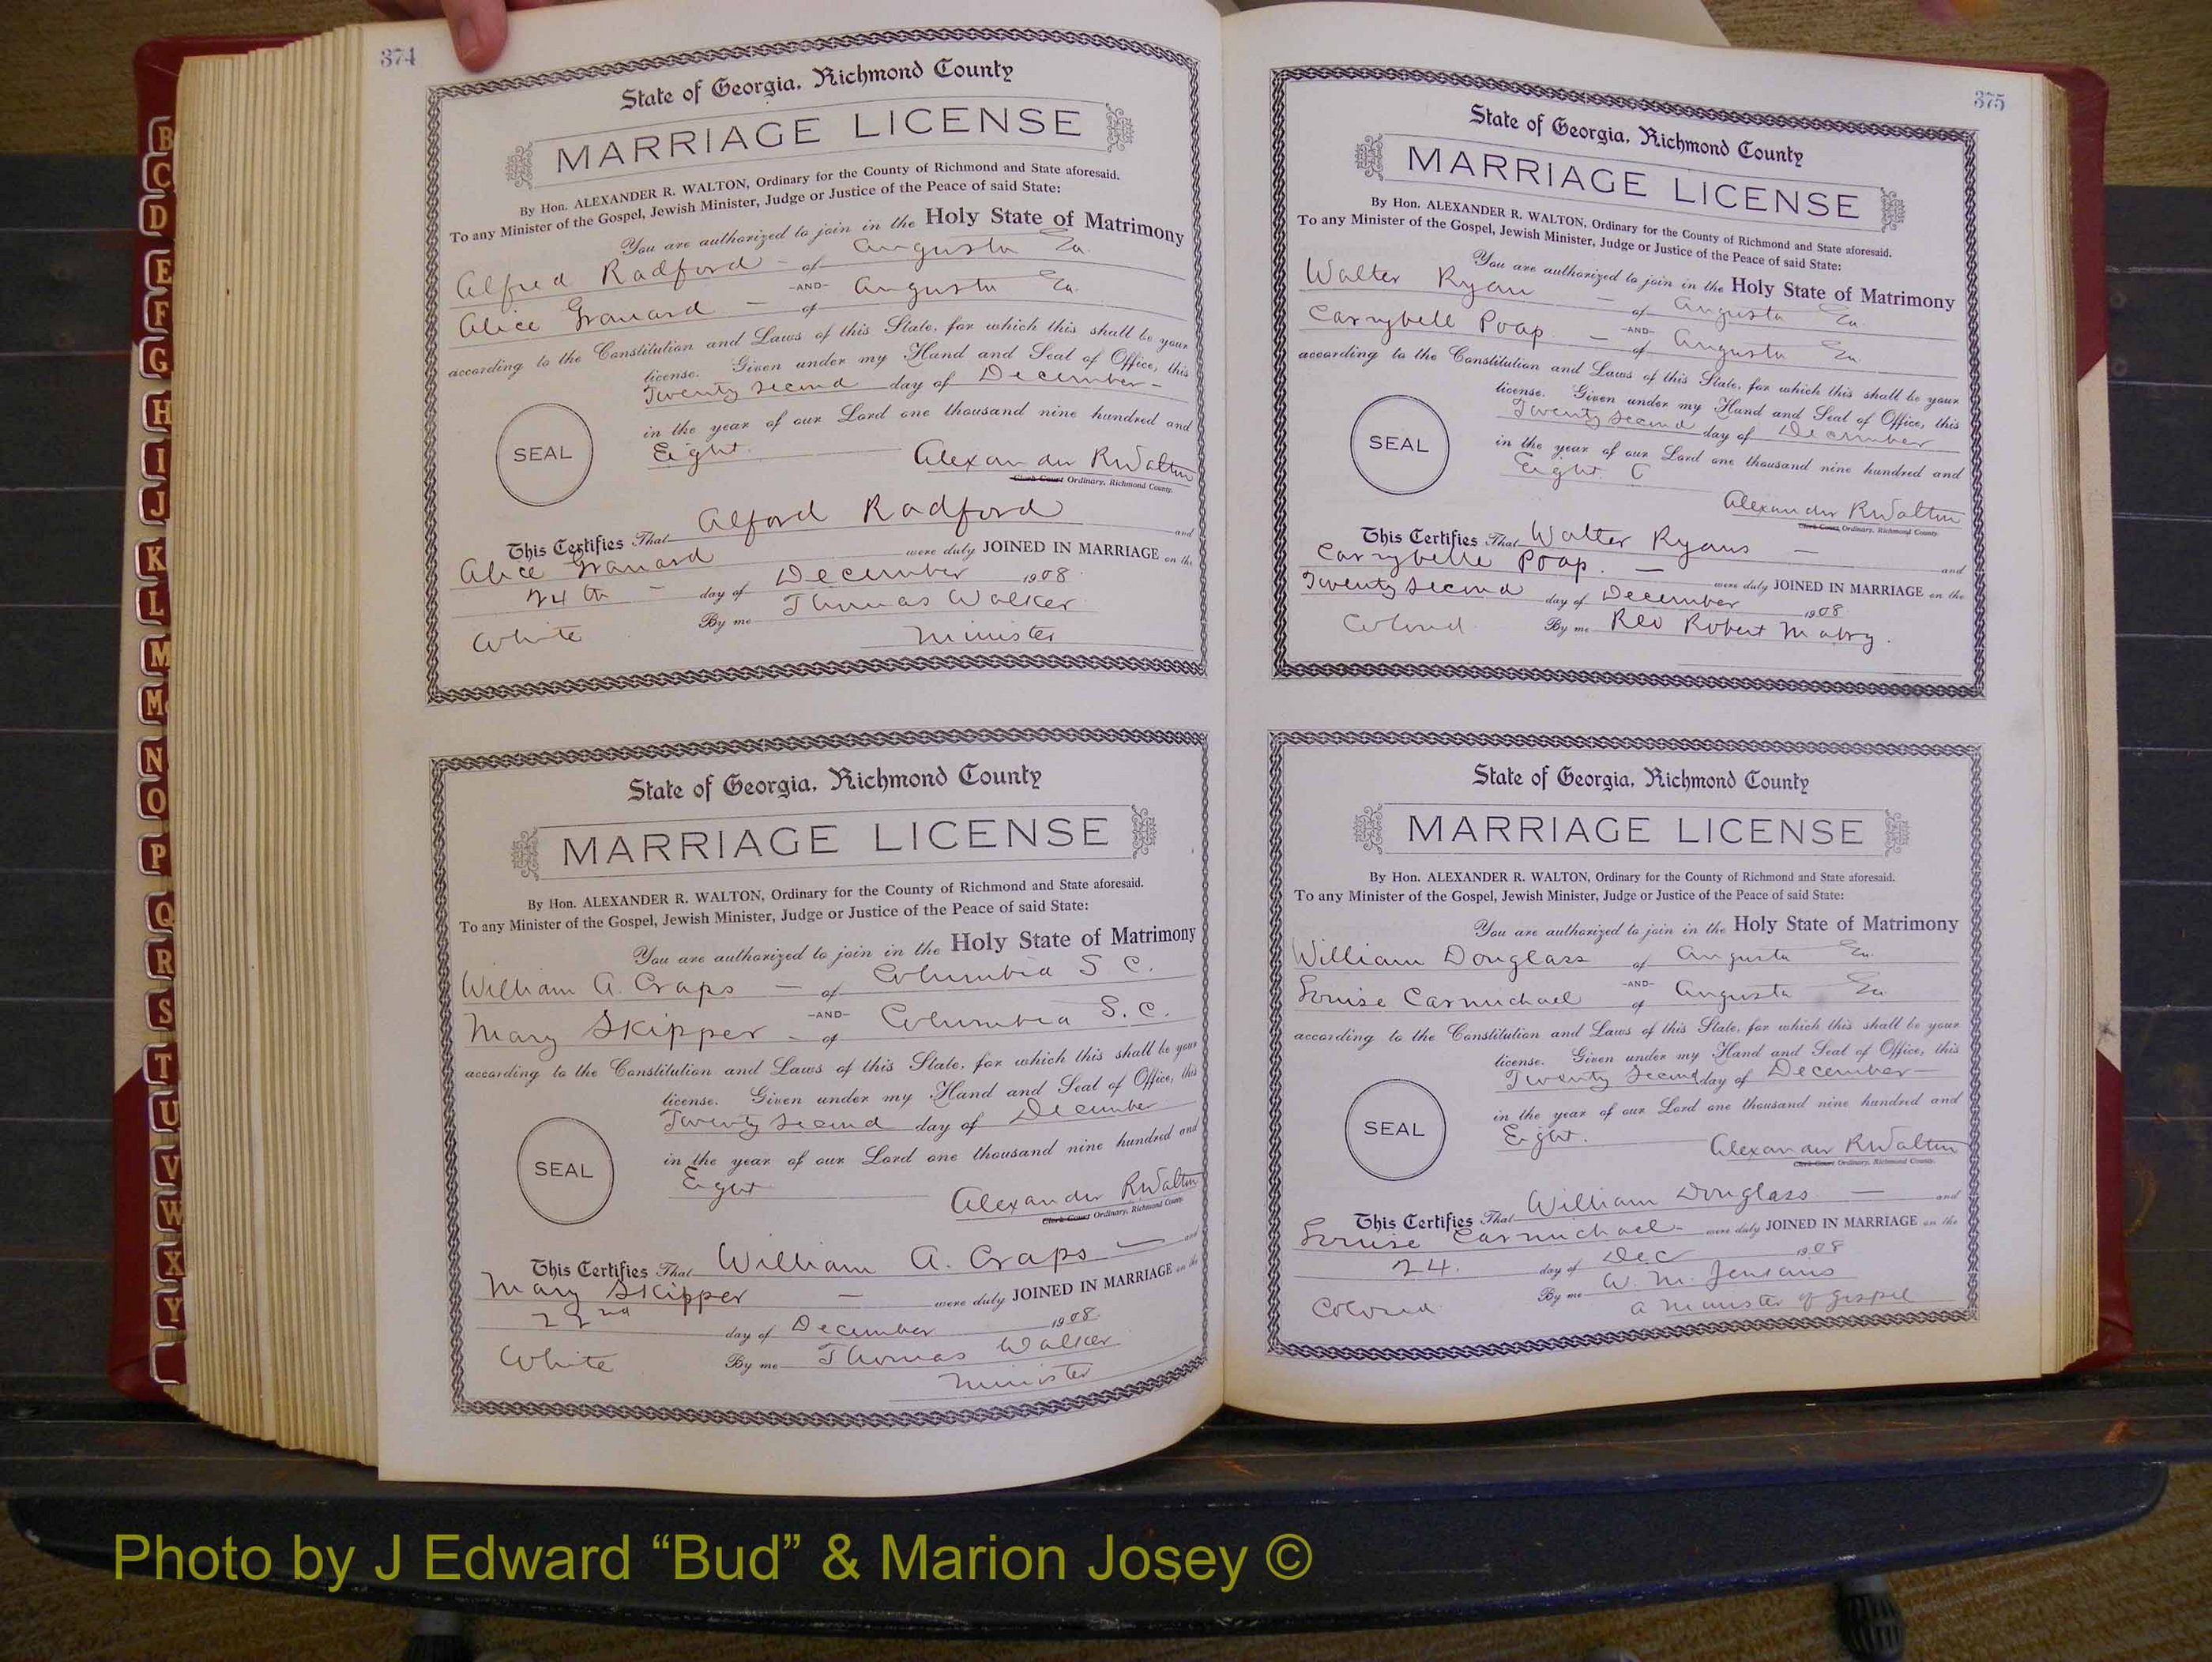 374
State of Georgia, Richmond County
MARRIAGE LICENSE
By Hon. ALEXANDER R. WALTON, Ordinary for the County of Richmond and State aforesaid.
To any Minister of the Gospel, Jewish Minister, Judge or Justice of the Peace of said State:
You are authorized to join in the Holy State of Matrimony
Alfred Radford - of Augusta Ga.
-AND-
Alice Granard - of Augusta Ga.
according to the Constitution and Laws of this State, for which this shall be your
license. Given under my Hand and Seal of Office, this
Twenty Second day of December -
in the year of our Lord one thousand nine hundred and
Eight.
SEAL
Alexander R Walton
Clerk Court Ordinary, Richmond County.
This Certifies That Alford Radford and
Alice Granard were duly JOINED IN MARRIAGE on the
24th - day of December 1908.
By me Thomas Walker
White Minister
State of Georgia, Richmond County
MARRIAGE LICENSE
By Hon. ALEXANDER R. WALTON, Ordinary for the County of Richmond and State aforesaid.
To any Minister of the Gospel, Jewish Minister, Judge or Justice of the Peace of said State:
You are authorized to join in the Holy State of Matrimony
William A. Craps - of Columbia S C.
-AND-
Mary Skipper - of Columbia S.C.
according to the Constitution and Laws of this State, for which this shall be your
license. Given under my Hand and Seal of Office, this
Twenty Second day of December
in the year of our Lord one thousand nine hundred and
Eight
SEAL
Alexander R Walton
Clerk Court Ordinary, Richmond County
This Certifies That William A. Craps - and
Mary Skipper - were duly JOINED IN MARRIAGE on the
22nd day of December 1908.
White By me Thomas Walker
Minister
375
State of Georgia, Richmond County
MARRIAGE LICENSE
By Hon. ALEXANDER R. WALTON, Ordinary for the County of Richmond and State aforesaid.
To any Minister of the Gospel, Jewish Minister, Judge or Justice of the Peace of said State:
You are authorized to join in the Holy State of Matrimony
Walter Ryan - of Augusta Ga.
-AND-
Carrybell Poap - of Augusta Ga.
according to the Constitution and Laws of this State, for which this shall be your
license. Given under my Hand and Seal of Office, this
Twenty Second day of December
in the year of our Lord one thousand nine hundred and
Eight.
SEAL
Alexander R Walton
Clerk Court Ordinary, Richmond County.
This Certifies That Walter Ryans - and
Carrybelle Poap. - were duly JOINED IN MARRIAGE on the
Twenty Second day of December 1908
Colored By me Rev Robert Mabry.
State of Georgia, Richmond County
MARRIAGE LICENSE
By Hon. ALEXANDER R. WALTON, Ordinary for the County of Richmond and State aforesaid.
To any Minister of the Gospel, Jewish Minister, Judge or Justice of the Peace of said State:
You are authorized to join in the Holy State of Matrimony
William Douglass of Augusta Ga.
-AND-
Louise Carmichael of Augusta Ga
according to the Constitution and Laws of this State, for which this shall be your
license. Given under my Hand and Seal of Office, this
Twenty Second day of December -
in the year of our Lord one thousand nine hundred and
Eight.
SEAL
Alexander R Walton
Clerk Court Ordinary, Richmond County.
This Certifies That William Douglass - and
Louise Carmichael - were duly JOINED IN MARRIAGE on the
24. day of Dec 1908
By me W. M. Jenkins
Colored a minister of gospel
B
C
D
E
F
G
H
I
J
K
L
M
Mc
N
O
P
Q
R
S
T
U
V
W
X
Y
Photo by J Edward “Bud” & Marion Josey ©